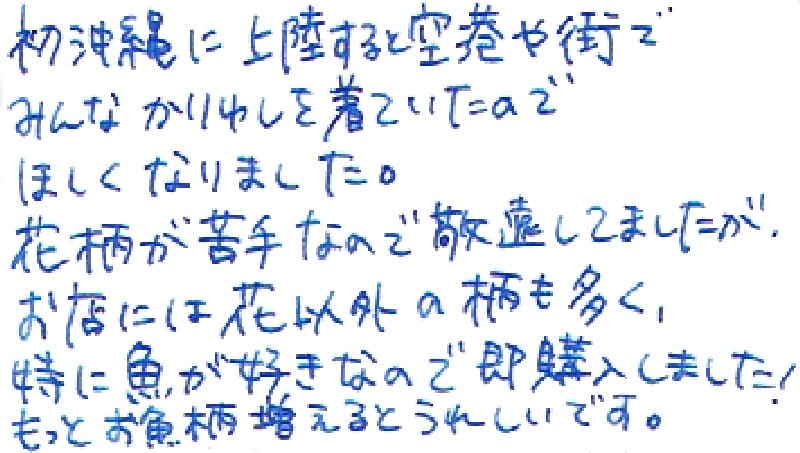 初沖縄に上陸すると空港や街で
みんなかりゆしを着ていたので
ほしくなりました。
花柄が苦手なので敬遠してましたが、
お店には花以外の柄も多く、
特に魚が好きなので即購入しました!
もっとお魚柄増えるとうれしいです。